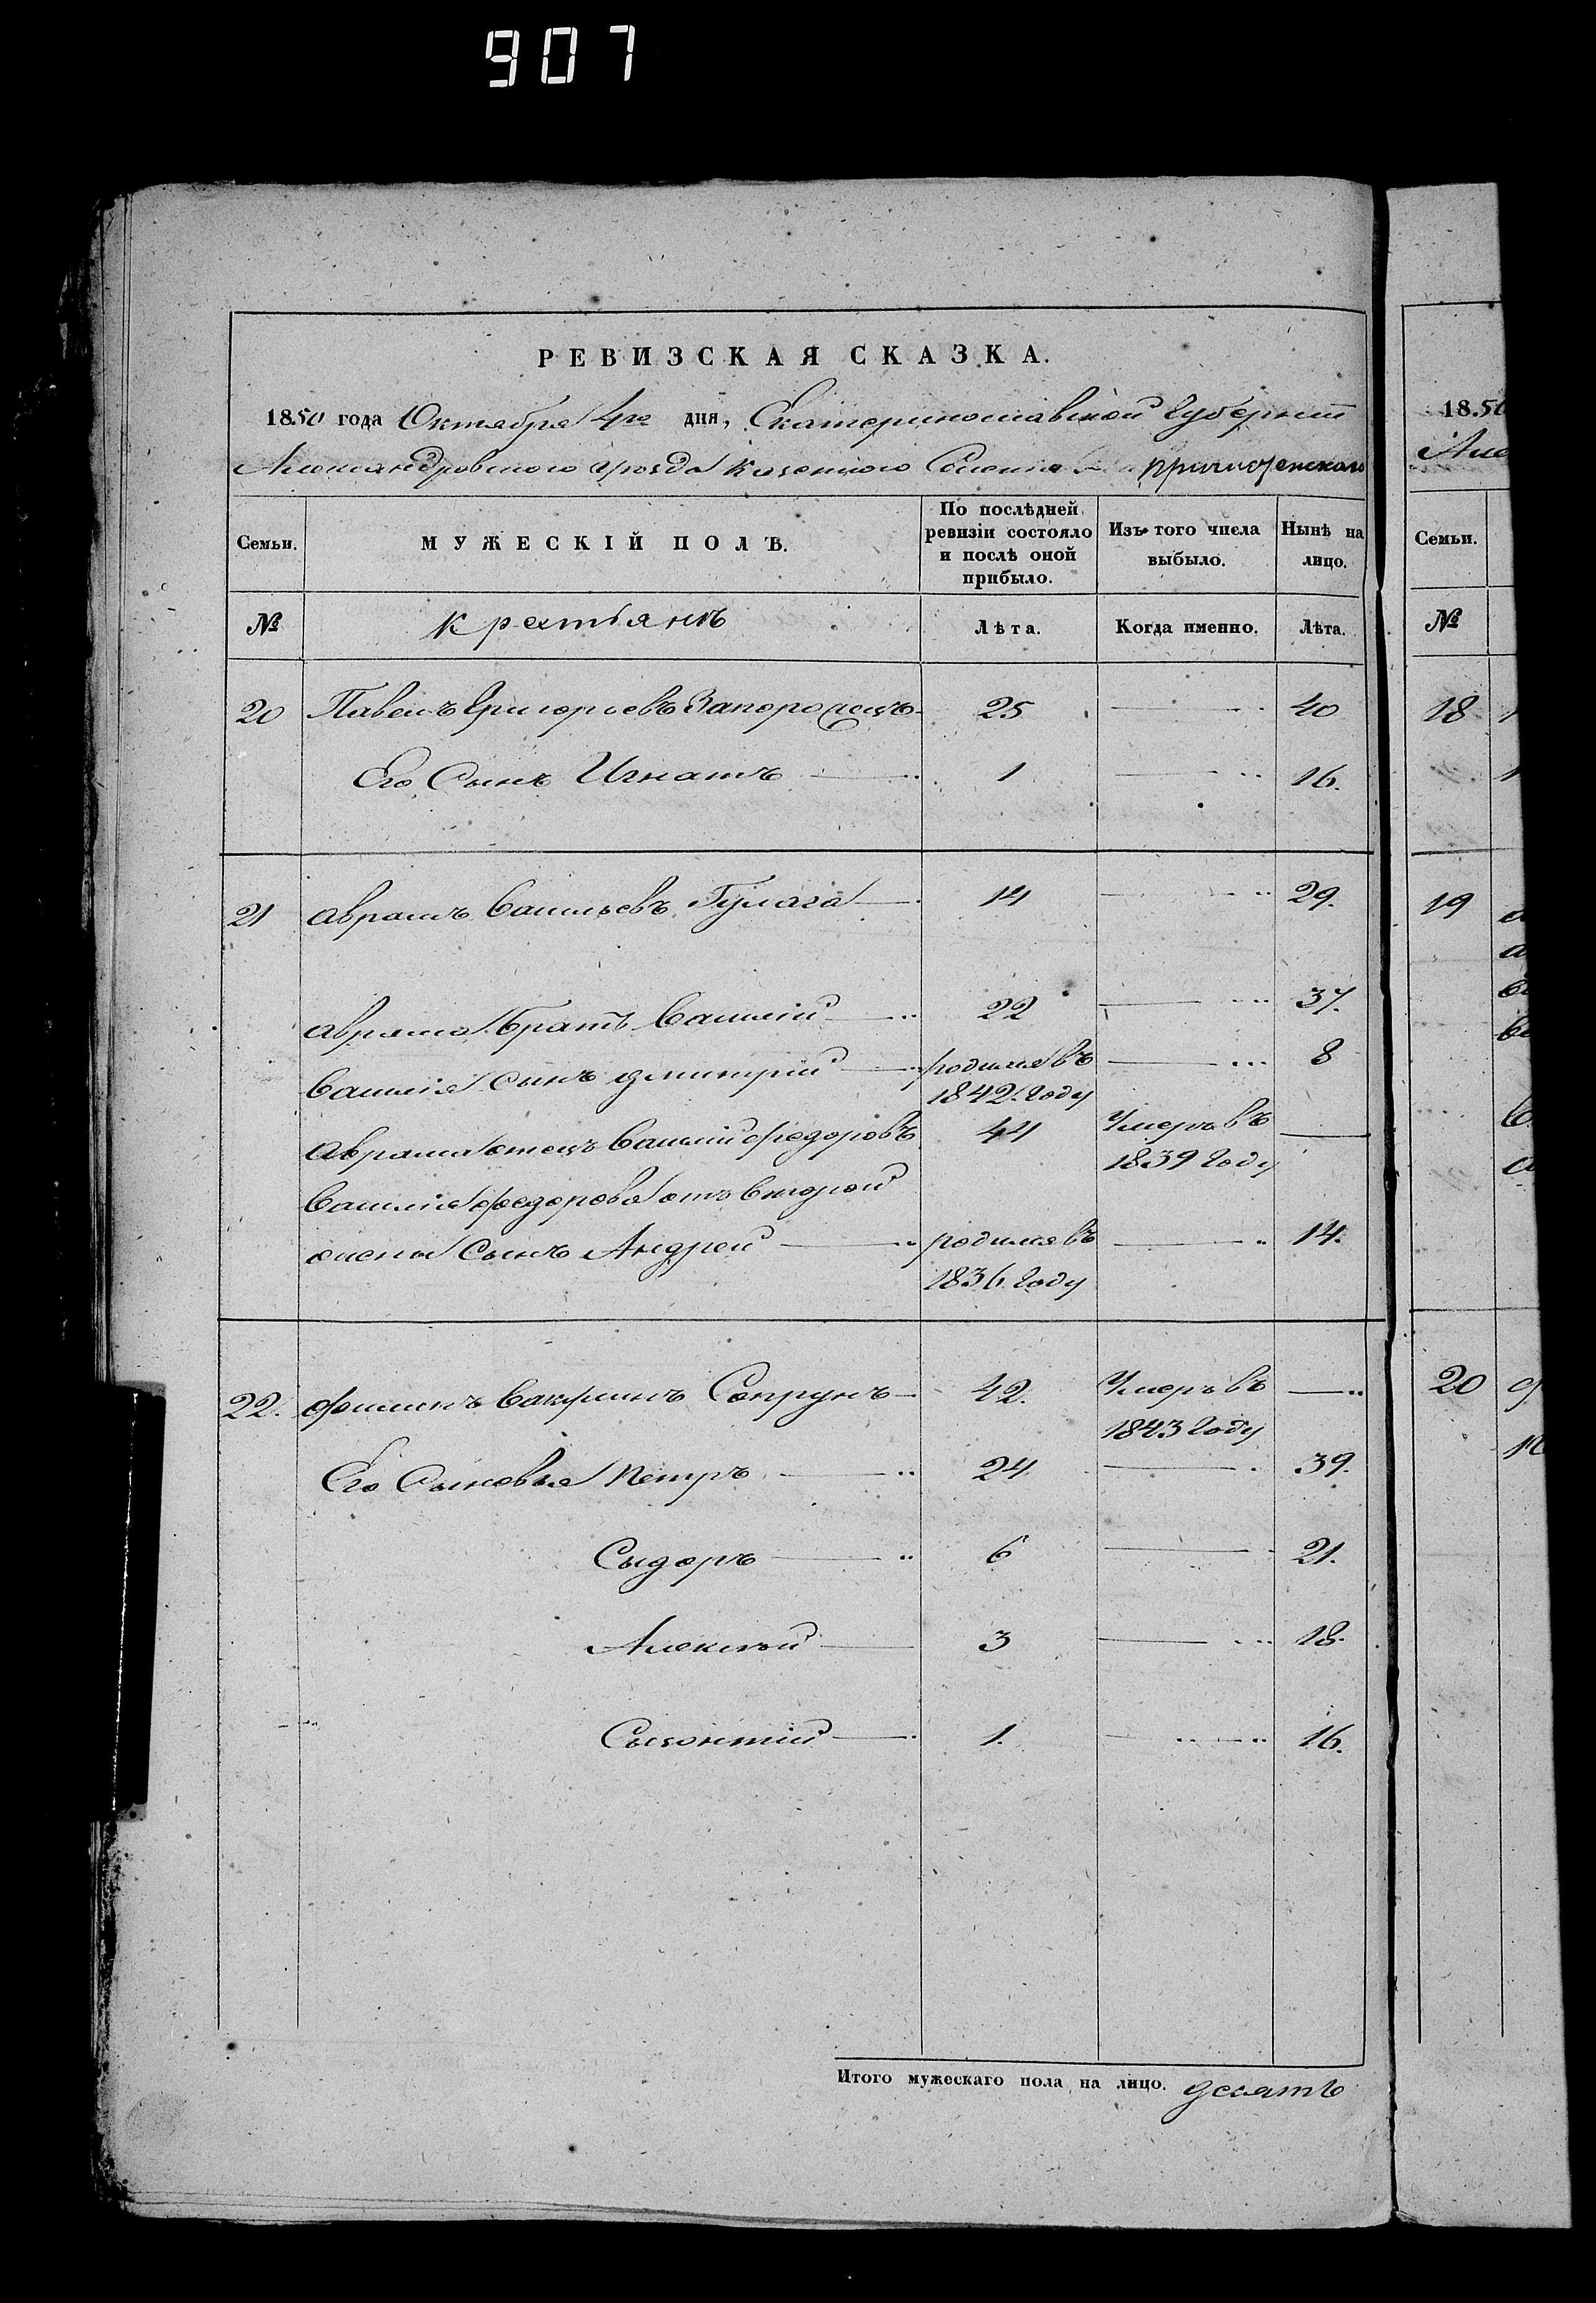 907
РЕВИЗСКАЯ СКАЗКА.
1850 года Октября 4го дня, Екатеринославской Губерніи
Александровского уезда казенного Селенія
Семьи. МУЖЕСКІЙ ПОЛЪ. По послѣдней ревизіи состояло и послѣ оной прибыло. Изъ того числа выбыло. Нынѣ на лицо.
№ крестьянъ Лѣта. Когда именно. Лѣта.
20 Павелъ Григорьевъ Запорожецъ 25 40
Его Сынъ Игнатъ 1 16.
21 Аврамъ Васильевъ Гулага 14 29.
Аврама братъ Василій 22 37.
Василія сынъ дмитрій родился въ 8
1842 Году
Аврама отецъ Василій федоровъ 44 Умеръ въ
1839 Году
Василія федорова отъ второй
жены Сынъ Андрей родился въ 14.
1836 Году
22. филипъ Сопрунъ 42. Умеръ въ
1843 Году
Его Сыновья Петръ 24 39.
Сыдоръ 6 21.
Алексѣй 3 18.
1. 16.
Итого мужескаго пола на лицо. десять
1850
Але
Семьи.
№
18
19
20